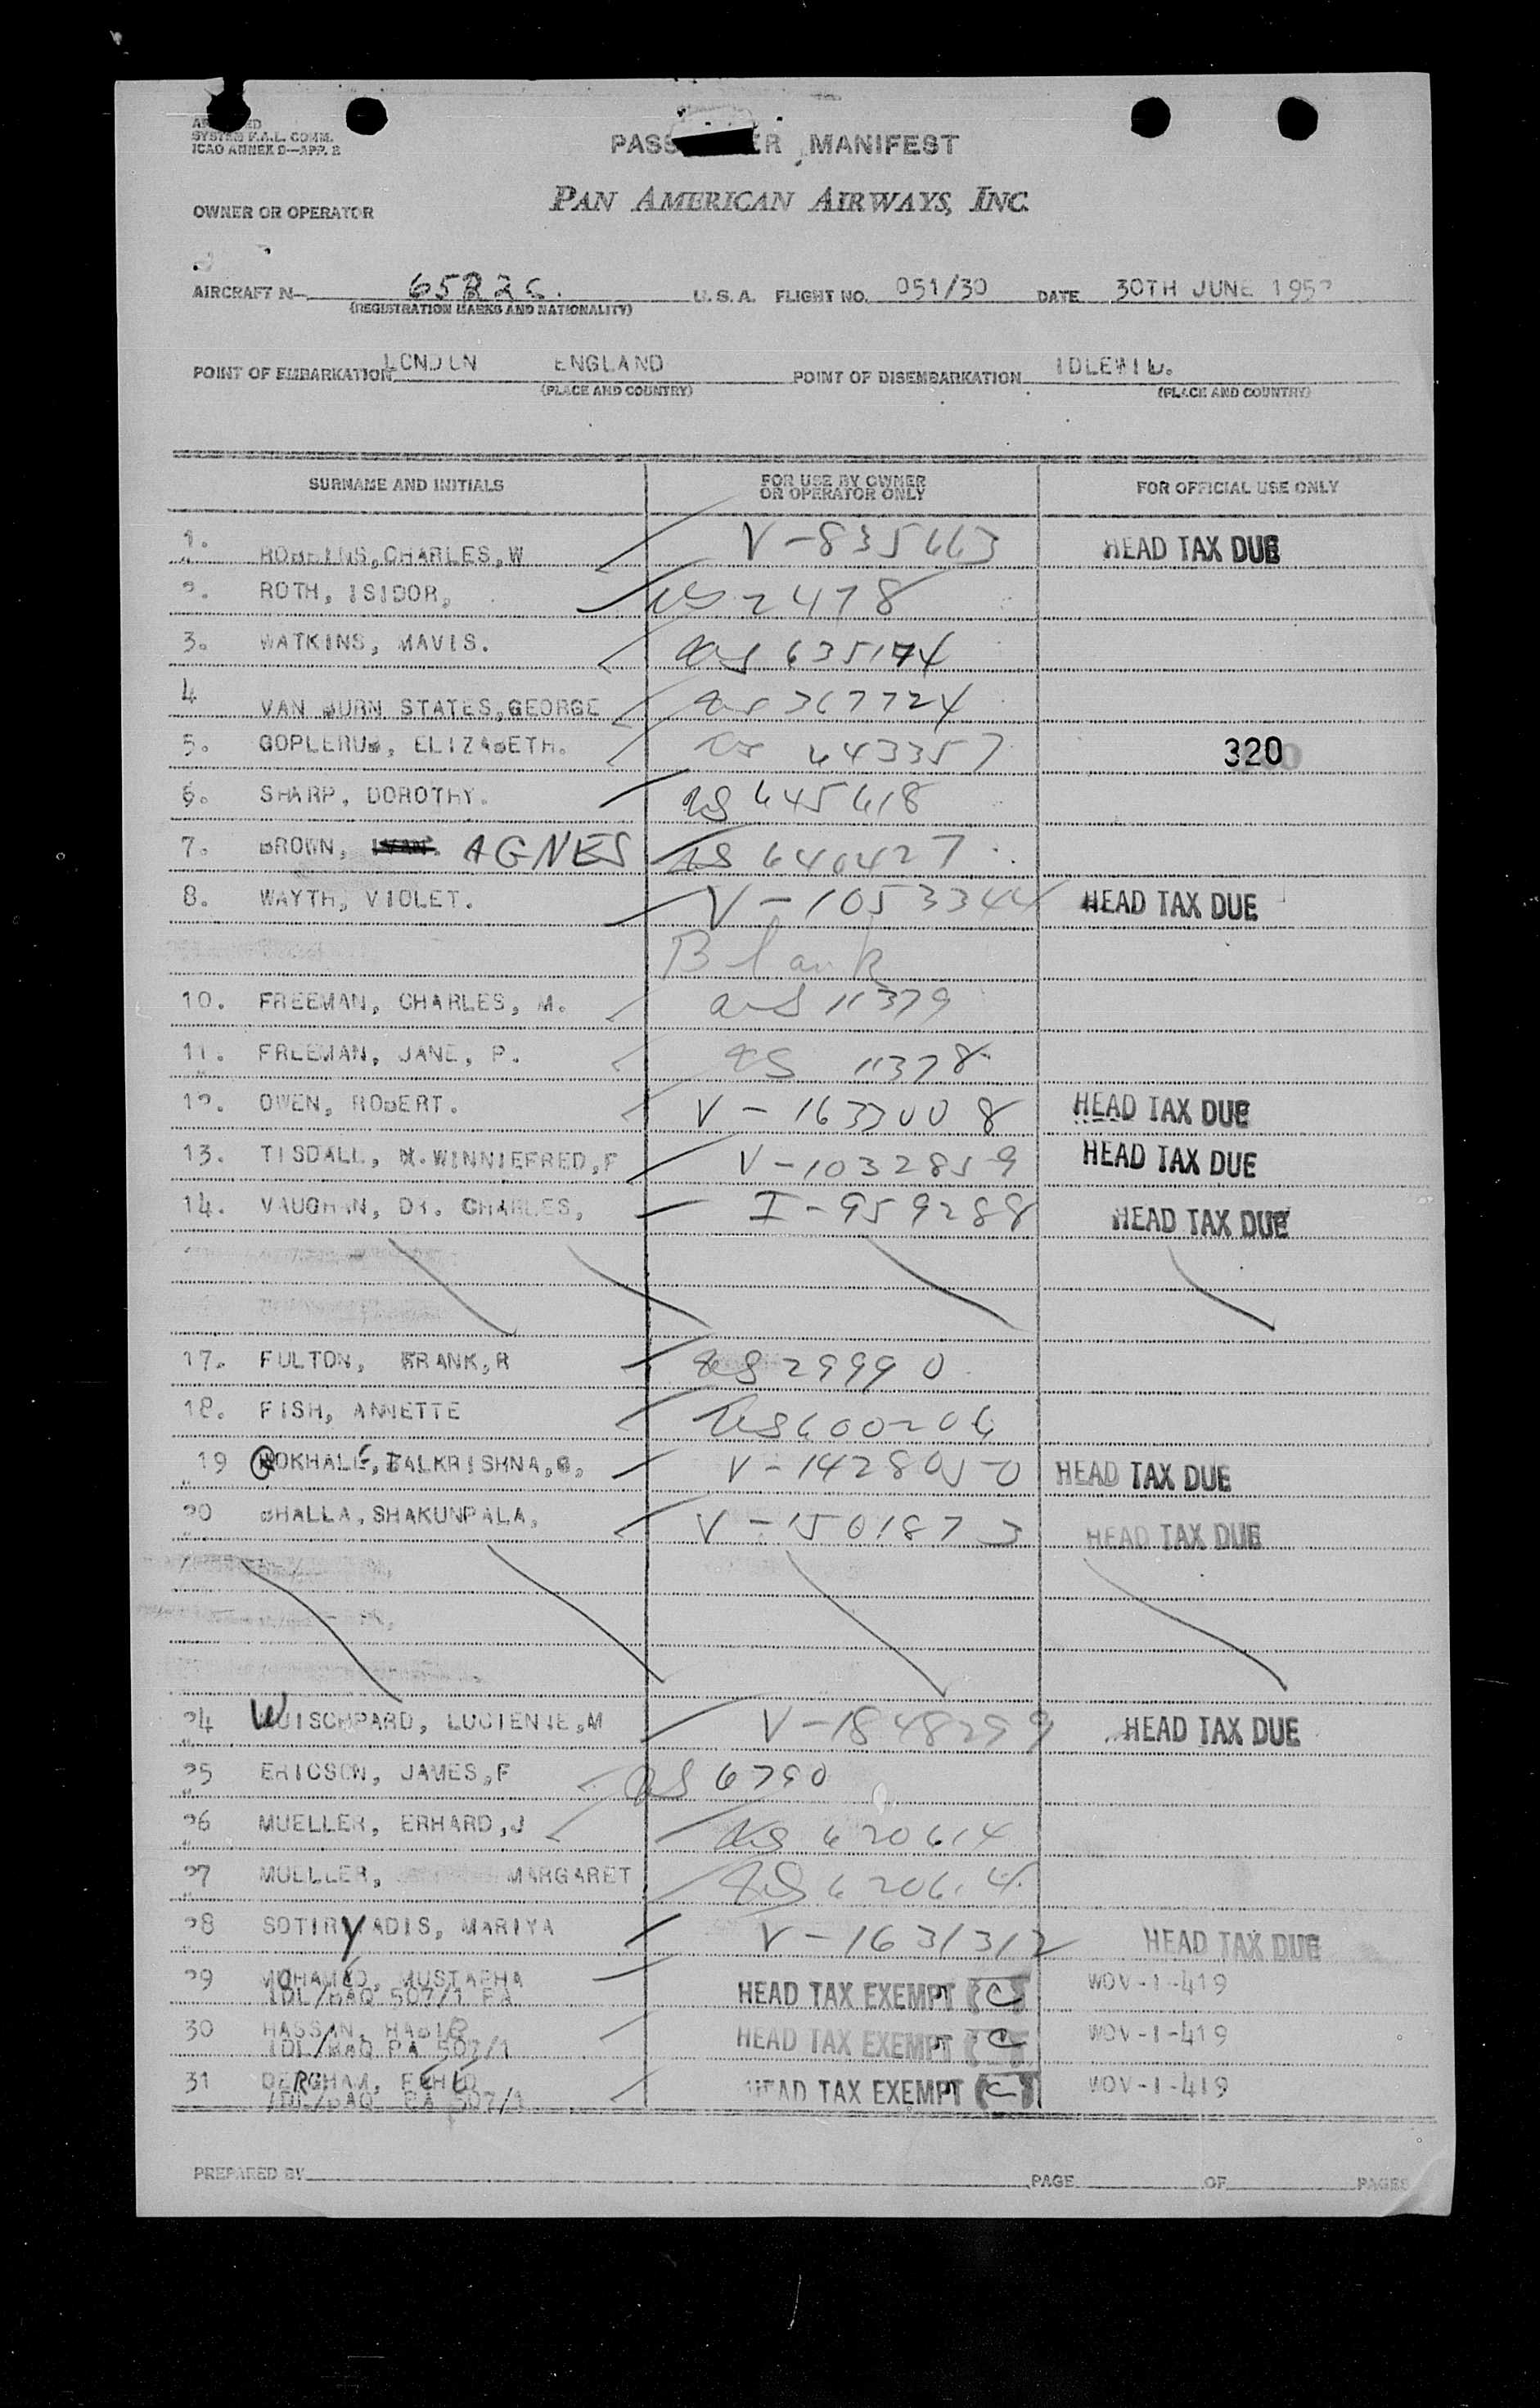 SYSTEM F.A.L. COMM.
ICAO ANNEX 9—APP. B
MANIFEST
PAN AMERICAN AIRWAYS, INC.
OWNER OR OPERATOR
AIRCRAFT N- U. S. A. FLIGHT NO. 051/30 DATE 30TH JUNE 195
(REGISTRATION MARKS AND NATIONALITY)
POINT OF EMBARKATION LONDON ENGLAND POINT OF DISEMBARKATION IDLEWILD.
(PLACE AND COUNTRY) (PLACE AND COUNTRY)
SURNAME AND INITIALS FOR USE BY OWNER OR OPERATOR ONLY FOR OFFICIAL USE ONLY
1. ROBBINS,CHARLES,W V-835663 HEAD TAX DUE
2. ROTH, ISIDOR, 2478
3. WATKINS, MAVIS. 635174
4 VAN BURN STATES,GEORGE 367724
5. GOPLERUB, ELIZABETH. 643357 320
6. SHARP, DOROTHY. US 645618
7. BROWN, AGNES US 640427
8. WAYTH, VIOLET. V-1053344 HEAD TAX DUE
Blank
10. FREEMAN, CHARLES, M. US 11379
11. FREEMAN, JANE, P. US 11378
12. OWEN, ROBERT. V-1633008 HEAD TAX DUE
13. TISDALL, M.WINNIEFRED,F V-1032859 HEAD TAX DUE
14. VAUGHAN, DR. CHARLES, I-959288 HEAD TAX DUE
17. FULTON, FRANK,R US 29990
18. FISH, ANNETTE US 600206
19 GOKHALE, BALKRISHNA,G, V-1428050 HEAD TAX DUE
20 BHALLA,SHAKUNPALA, V-1501873 HEAD TAX DUE
24 WUISCHPARD, LUCIENNE,M V-1848299 HEAD TAX DUE
25 ERICSON, JAMES,F US 6790
26 MUELLER, ERHARD,J US 620614
27 MUELLER, MARGARET US 620614
28 SOTIRYADIS, MARIYA V-1631312 HEAD TAX DUE
29 MOHAMED, MUSTAPHA HEAD TAX EXEMPT (C) WOV-1-419
IDL/BAQ 507/1 PA
30 HASSAN, HABIB HEAD TAX EXEMPT (C) WOV-1-419
IDL/BAQ PA 507/1
31 DERGHAM, HEAD TAX EXEMPT (C) WOV-1-419
IDL/BAQ PA 507/1
PREPARED BY PAGE OF PAGES